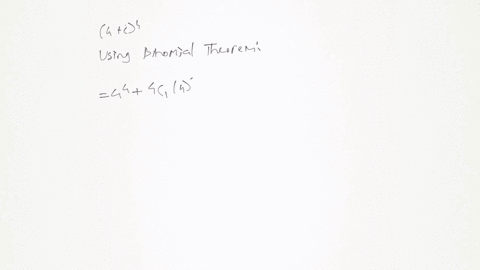 (4+i)^4
Using Binomial Theorem:
= 4^4 + 4C1 (4)